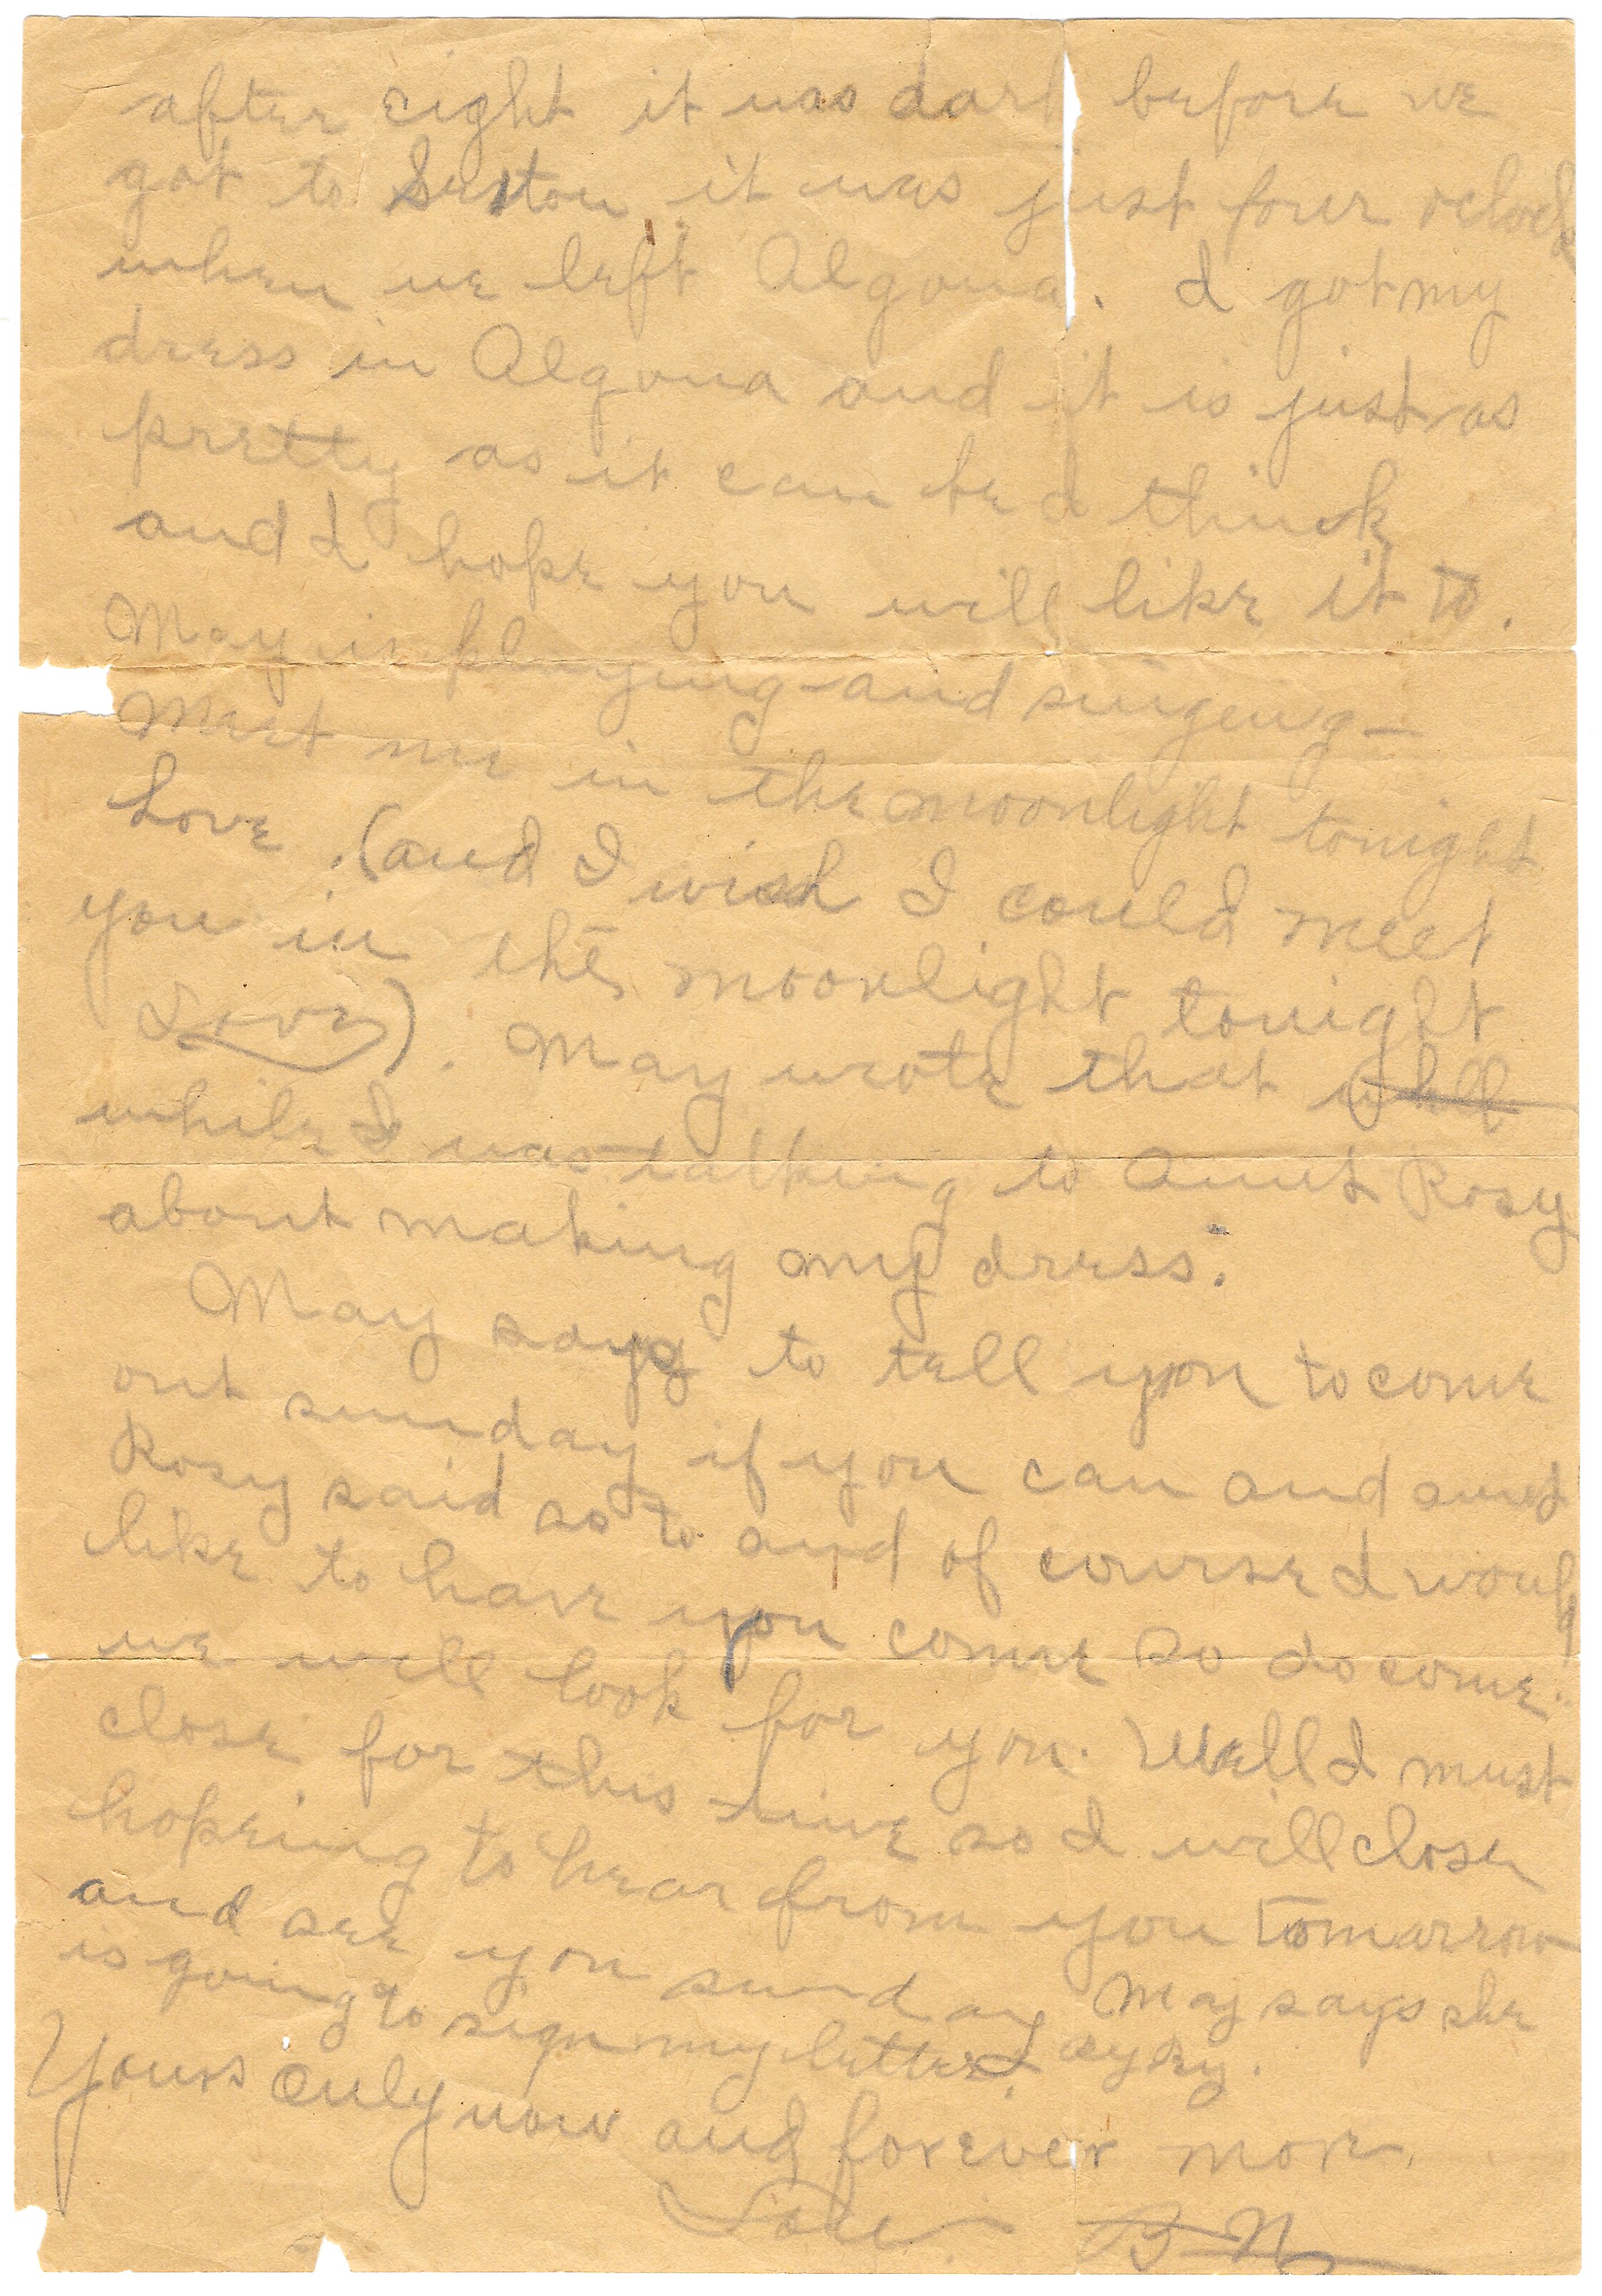 after eight it was dark before we
got to Sexton it was just four oclock
when we left Algona. I got my
dress in Algona and it is just as
pretty as it can be I think
and I hope you will like it to.
May is playing and singeng-
Meet me in the moonlight tonight
Love. (and I wish I could meet
you in the moonlight tonight
Love). May wrote that
while I was talking to Aunt Rosy
about making my dress.
May says to tell you to come
out sunday if you can and aunt
Rosy said so to and of course I would
like to have you come so do come!
we will look for you. Well I must
close for this time so I will close
hopeing to hear from you tomarrow
and see you sunday May says she
is going to sign my letter
Yours only now and forever more.
Love. B-N